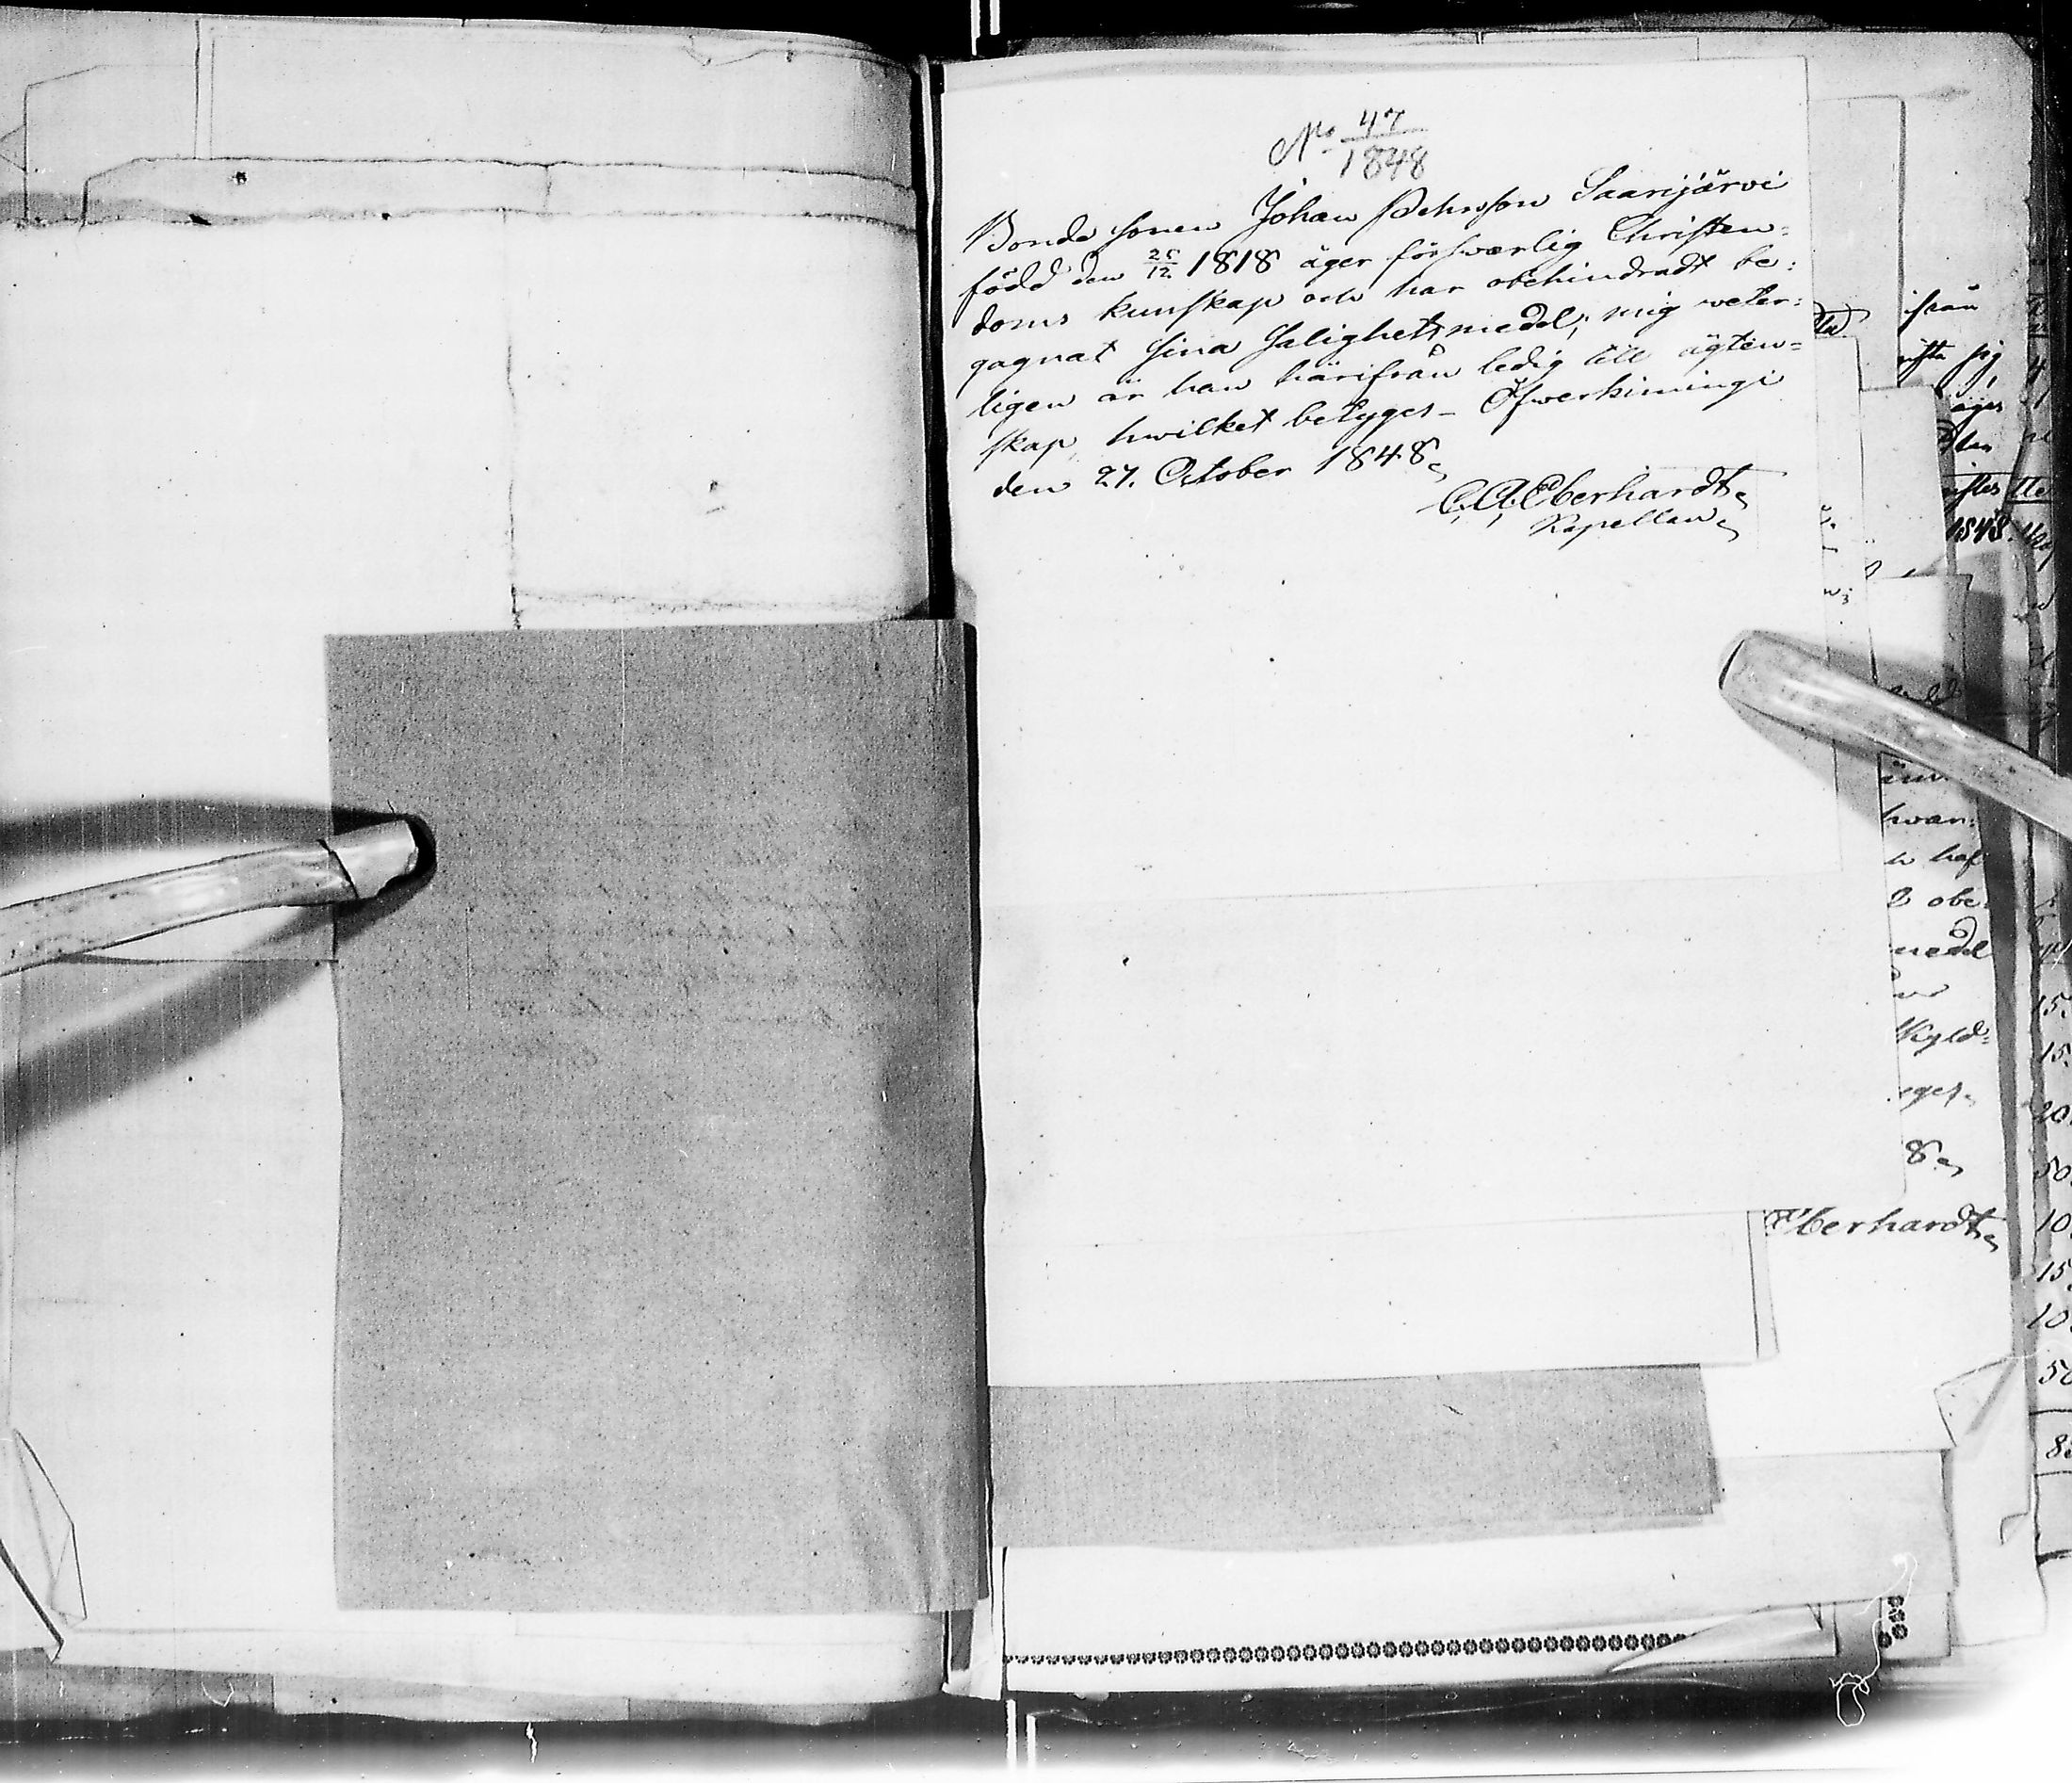 No 47
1848
Bonde sonen Johan Pehrsson Saarijärvi
född den 25/12 1818 äger försvarlig Christen=
doms kunskap och har obehindradt be=
gagnat sina salighetsmedel; mig veter=
ligen är han härifrån ledig till ägten=
skap, hwilket betyges_ Öfwerkiimingi
den 27. October 1848.
C. A. Eberhardt.
Kapellan.
ifrån
sig
äger
1848.
hwar=
haf
obe=
medel
skyld=
8.
Eberhardt.
15.
15.
20.
50.
10.
15.
10.
50